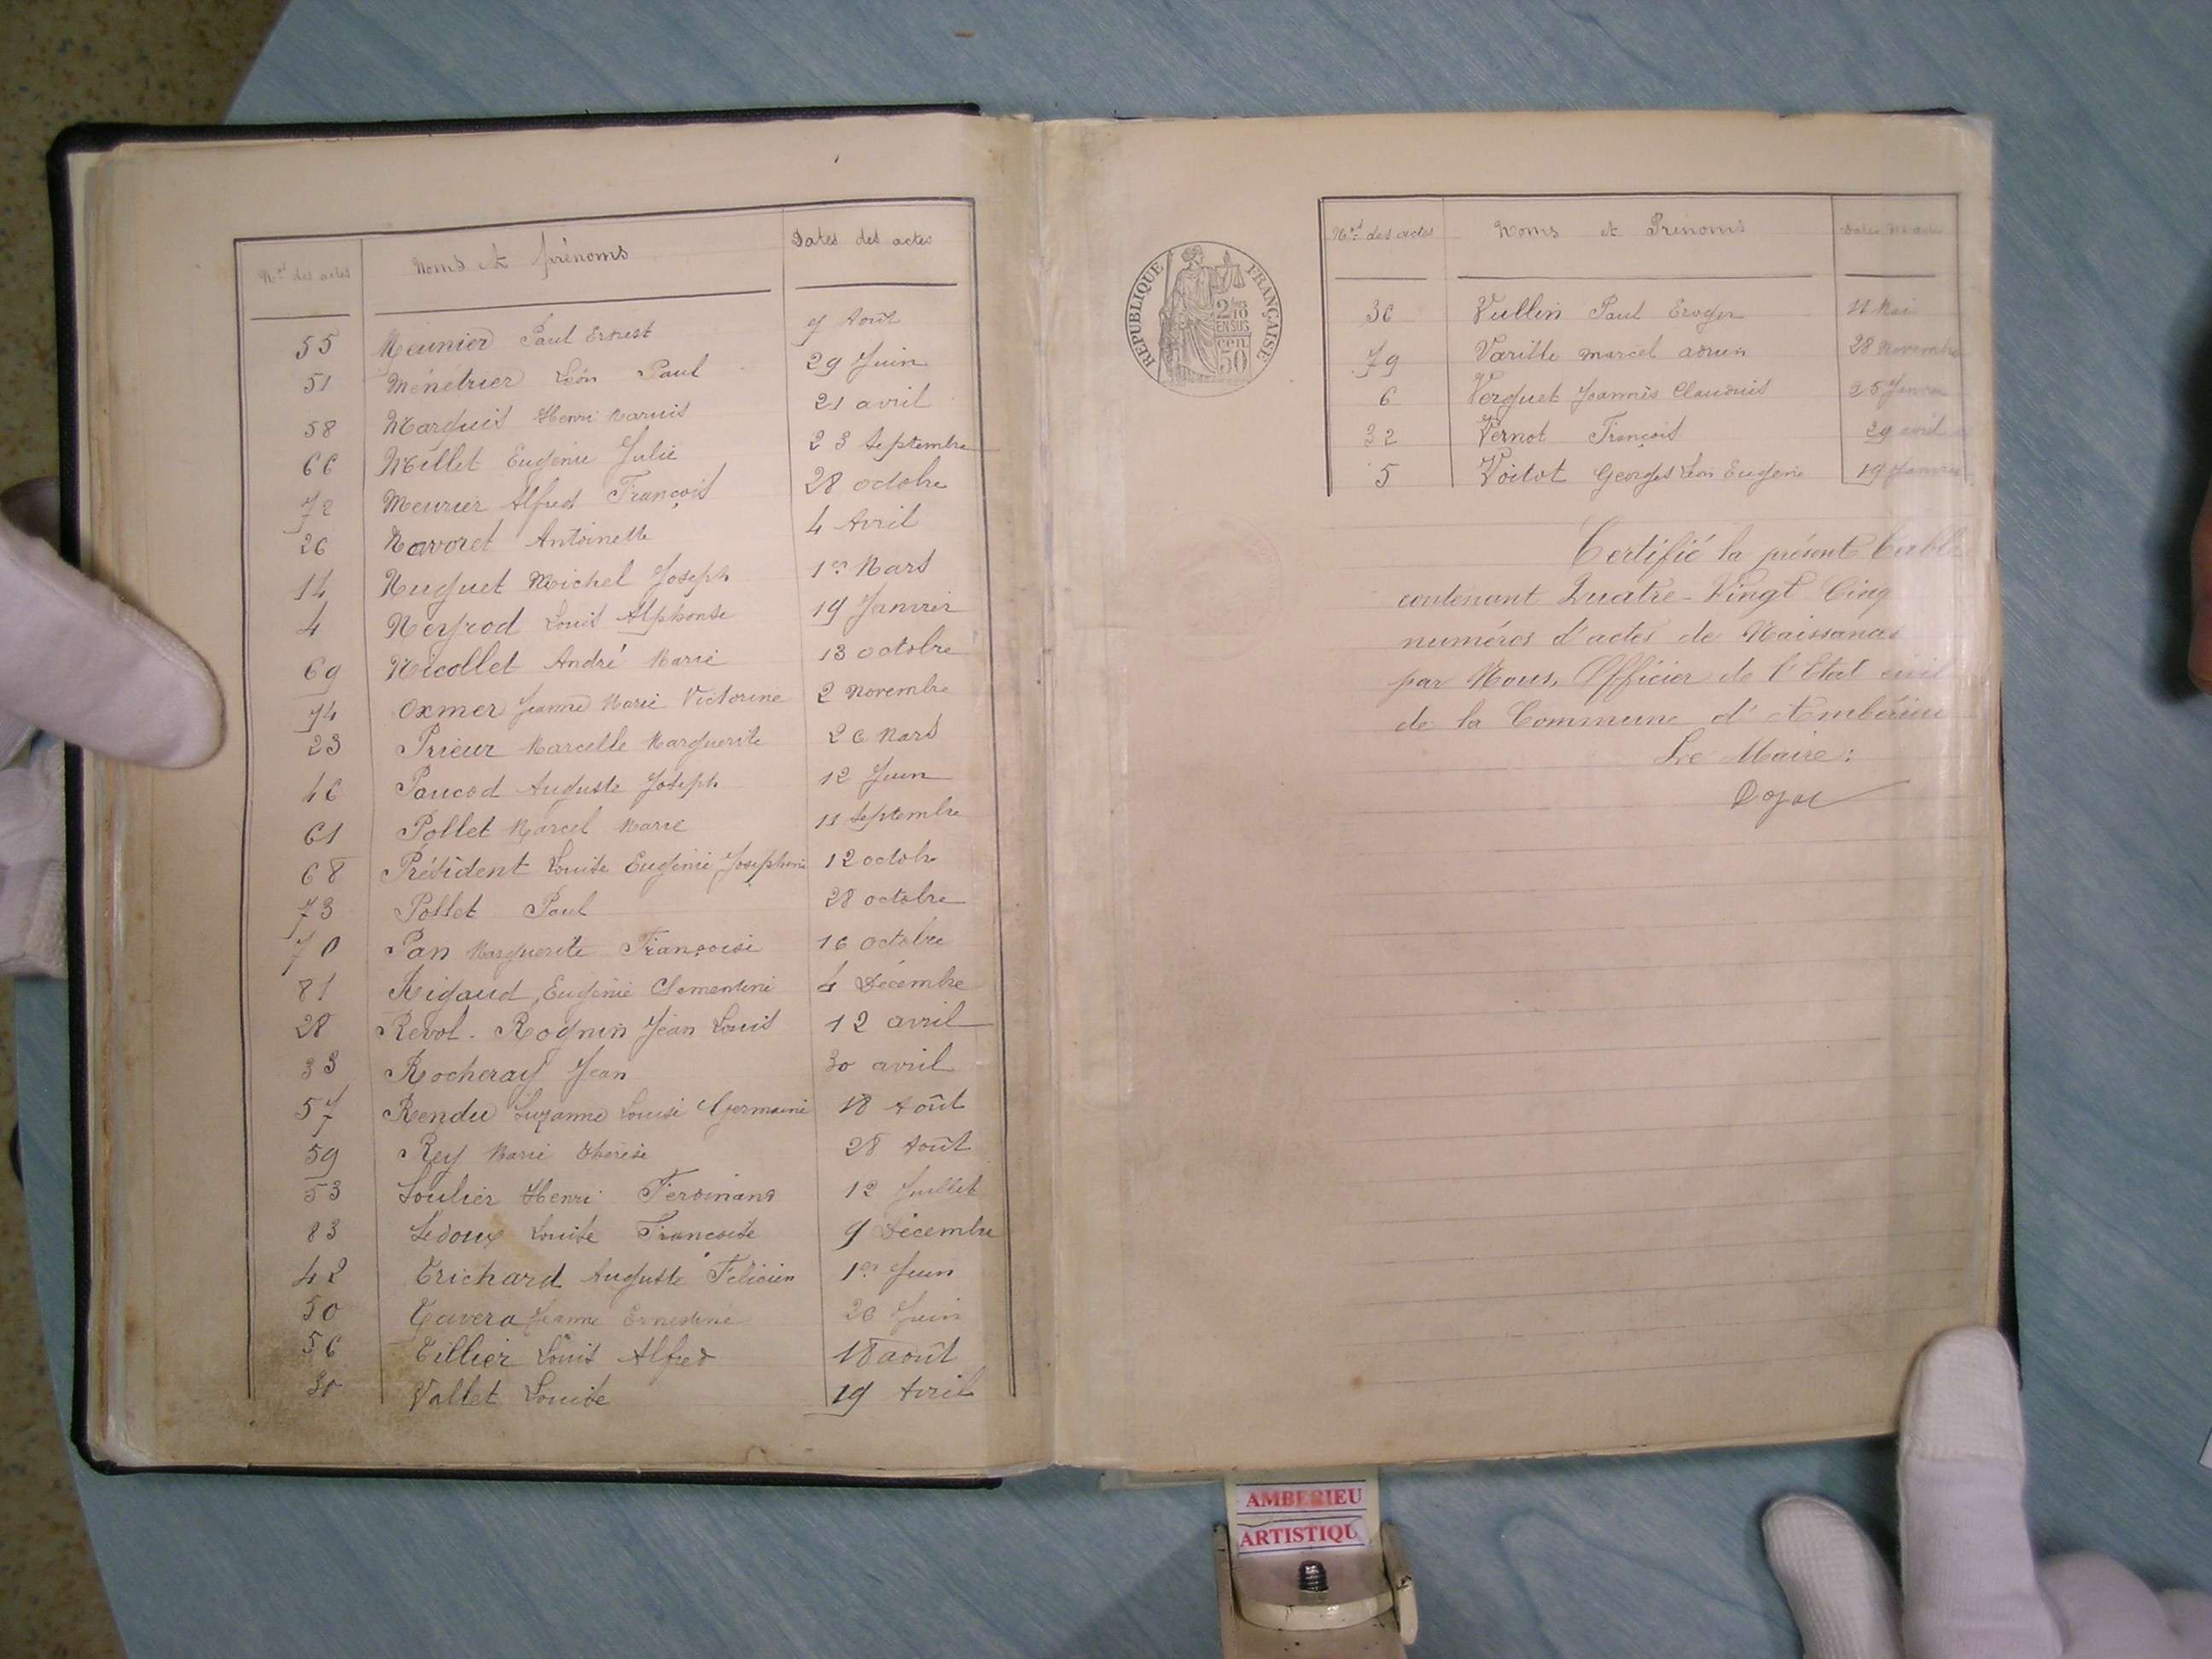 Nos des actes Noms et prénoms Dates des actes
55 Meunier Paul Ernest 9 Août
51 Ménétrier Léon Paul 29 Juin
58 Marquis Henri Marius 21 avril
66 Millet Eugénie Julie 23 Septembre
72 Meurier Alfred François 28 octobre
26 Navoret Antoinette 4 Avril
14 Nuguet Michel Joseph 1er Mars
4 Neyrod Louis Alphonse 19 Janvier
69 Nicollet André Marie 13 octobre
74 Oxmer Jeanne Marie Victorine 2 Novembre
23 Prieur Marcelle Marguerite 26 Mars
46 Paucod Auguste Joseph 12 Juin
61 Pollet Marcel Marie 11 Septembre
68 Président Louise Eugénie Josephine 12 octobre
73 Pollet Paul 28 octobre
70 Pan Marguerite Françoise 16 octobre
81 Rigaud Eugénie Clementine 4 Décembre
28 Revol-Rognin Jean Louis 12 avril
33 Rocheray Jean 30 avril
57 Rendu Suzanne Louise Germaine 18 Août
59 Rey Marie Therèse 28 Août
53 Soulier Henri Ferdinand 12 Juillet
83 Sedoux Louise Françoise 9 Décembre
42 Trichard Auguste Felicien 1er Juin
50 Tavera Jeanne Ernestine 26 Juin
56 Tillier Louis Alfred 18 août
30 Vallet Louise 19 Avril
RÉPUBLIQUE FRANÇAISE
2/10 EN SUS
50 cen
Nos des actes Noms et Prénoms Dates des actes
36 Vullin Paul 11 Mai
79 Varille Marcel adrien 28 Novembre
6 Verguet Joannès Claudius 25 Janvier
32 Vernot François 29 avril
5 Voitot Georges Léon Eugène 19 Janvier
Certifié la présente table
contenant Quatre-Vingt Cinq
numéros d'actes de Naissances
par Nous, Officier de l'Etat civil
de la Commune d'Ambérieu
Le Maire:
AMBERIEU
ARTISTIQU